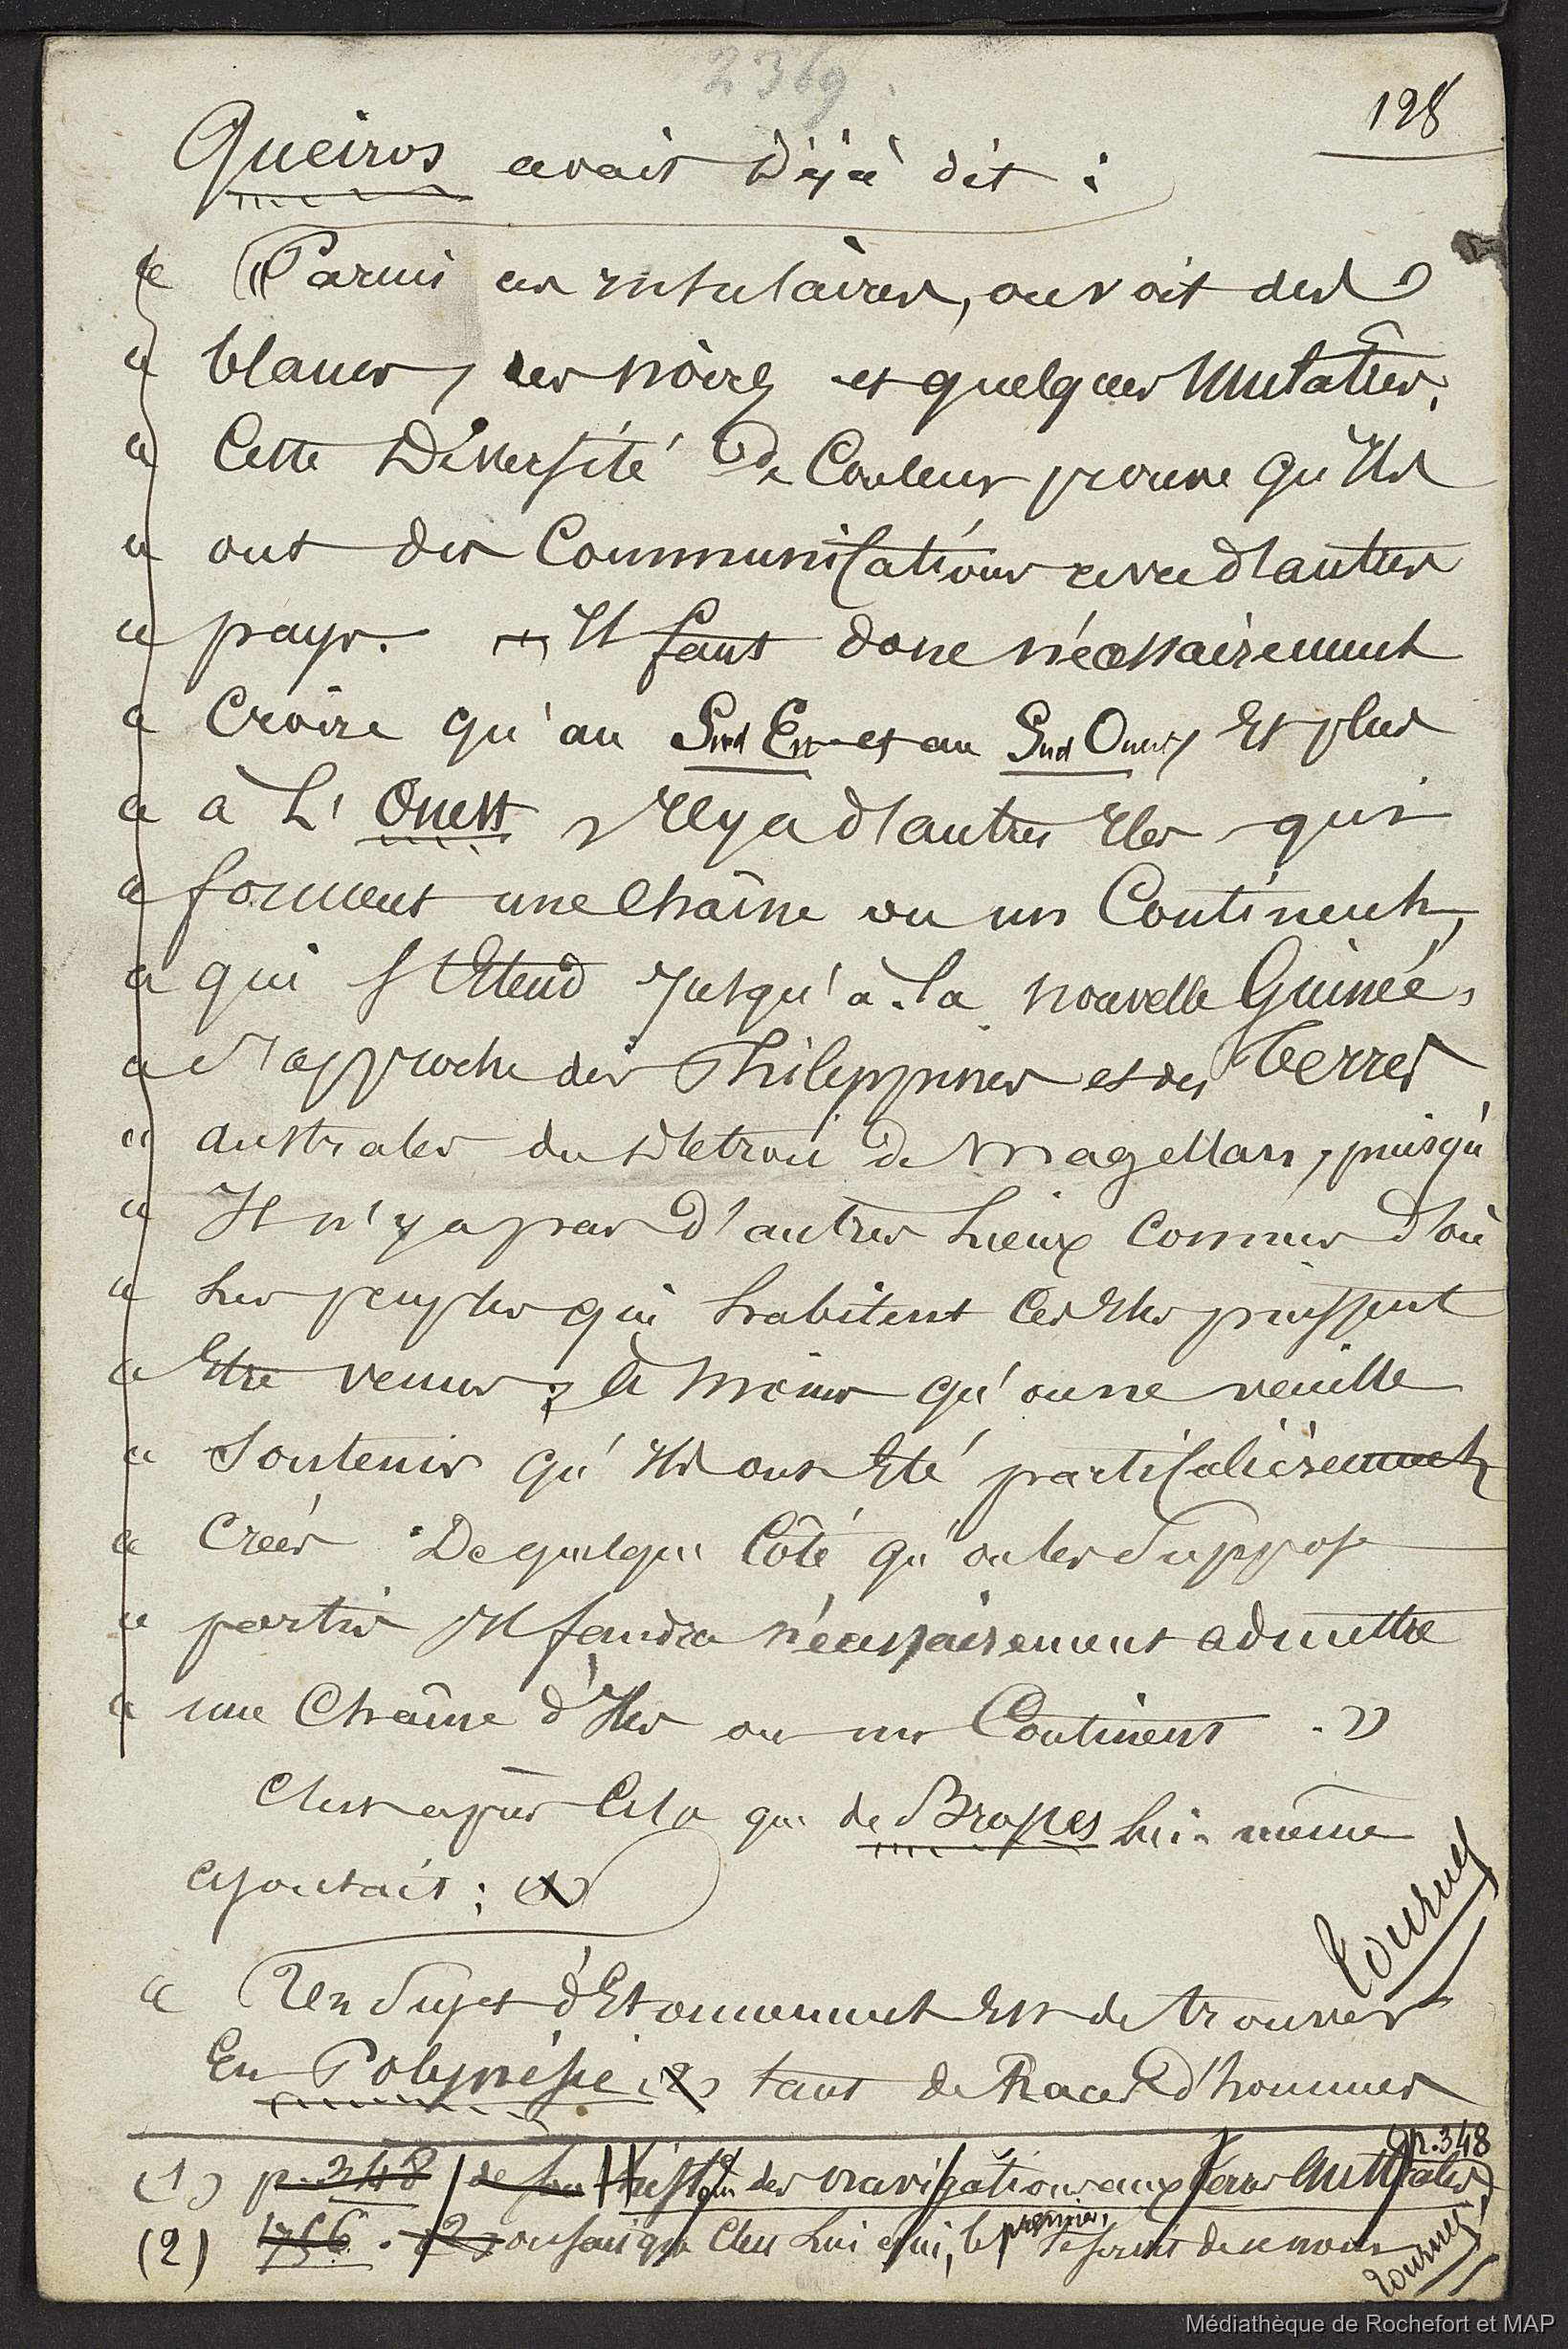 2369.
128
Queiros avait déjà dit :
« Parmi ces insulaires, on voit des
« blancs, des noirs et quelques mulâtres.
« Cette diversité de Couleur prouve qu'ils
« ont des Communications avec d'autres
« pays. Il faut donc nécessairement
« Croire qu'au Sud Est et au Sud Ouest, Et plus
« à L'Ouest, Il y a d'autres Iles qui
« forment une Chaîne ou un Continent,
« qui s'Etend Jusqu'à la nouvelle Guinée,
« et approche des Philippines et des Terres
« australes du détroit de Magellan, puisqu'
« Il n'y a pas d'autres Lieux Connus d'où
« Les peuples qui habitent Ces Iles puissent
« Etre venus ; à moins qu'on ne veuille
« Soutenir qu'Ils ont Eté particulièrement
« Créés. De quelque Côté qu'on les Suppose
« partis Il faudra nécessairement admettre
« une Chaîne d'Iles ou un Continent. »
C'est après Cela que de Brosses Lui-même
ajoutait : (1)
Tournez
« Un Sujet d'Etonnement Est de trouver
En Polynésie (2) tant de Races d'hommes
(1) p. 348 / de son histoire des navigations aux Terres Australes, p. 348
(2) 1756. (2) on sait que C'est Lui qui, le premier, se servit de ce nom
Tournez
Médiathèque de Rochefort et MAP